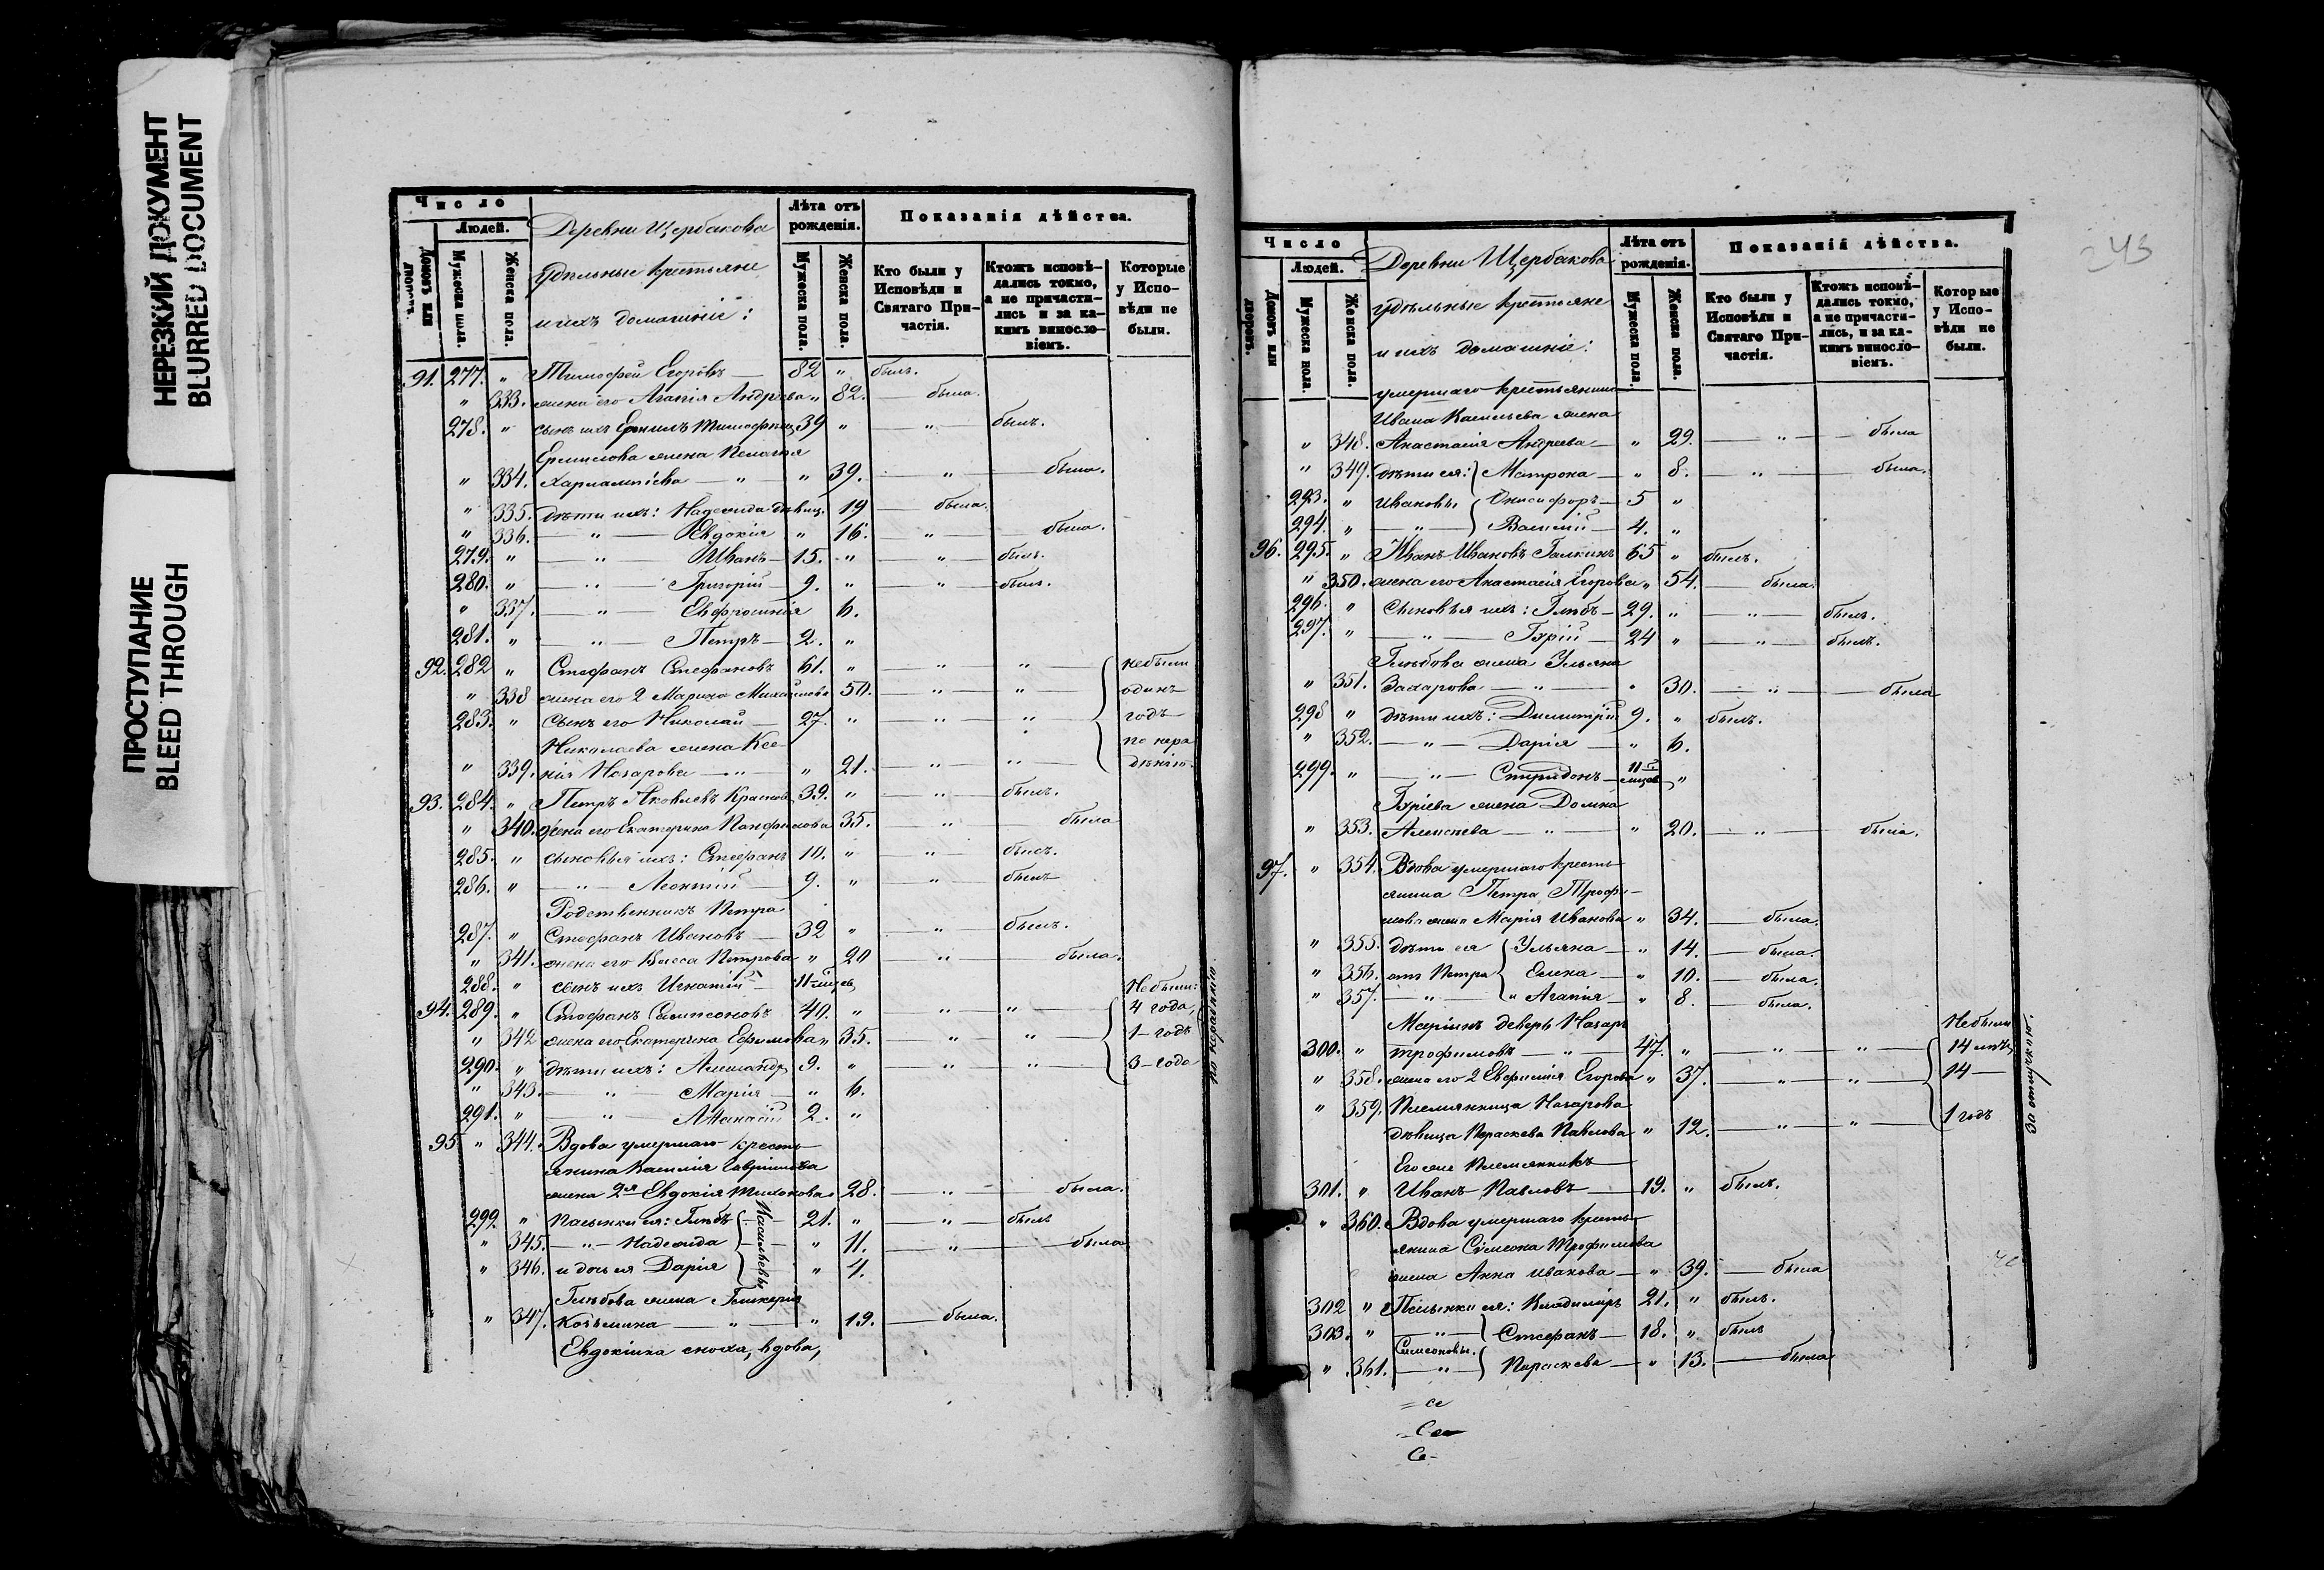 НЕРЕЗКИЙ ДОКУМЕНТ
BLURRED DOCUMENT
ПРОСТУПАНИЕ
BLEED THROUGH
Число
Людей.
Домовъ или дворовъ.
Мужеска пола.
Женска пола.
Деревни Щербакова
Удѣльные крестьяне
и ихъ домашніе:
Лѣта отъ рожденія.
Мужеска пола.
Женска пола.
Показанія дѣйства.
Кто были у Исповѣди и Святаго Причастія.
Ктожъ исповѣдались токмо, а не причастились и за какимъ винословіемъ.
Которые у Исповѣди не были.
91. 277. " Тимофей Егоровъ — 82 " былъ.
" 333. жена его Агапія Андрѣева " 82. — была.
278. " сынъ ихъ Ермилъ Тимофѣев 39 " — " — былъ.
Ермилова жена Пелагія
" 334. Харлампіева — " — " 39. — " — была.
" 335. дѣти ихъ: Надежда дѣвиц. 19 — была.
" 336. — " — Евдокія " 16. — " — была.
279. " — " — Иванъ — 15. " — " — былъ.
280. " — " — Григорій — 9. " — " — былъ.
" 337. — " — Евфросинія 6.
281. " — " — Петръ — 2. "
92. 282 " Стефанъ Стефановъ 61. " — " — " — небыли
" 338 жена его 2 Марина Михайлова 50. — " — " — одинъ
283. " сынъ его Николай — 27. " — " — " — годъ
Николаева жена Ксе- по нера
" 339. нія Назарова — " — " 21. — " — " — дѣнію.
93. 284. " Петръ Яковлевъ Краснов 39. " — " — былъ.
" 340. жена его Екатерина Панфилова 35. — " — была
285. " сыновья ихъ: Стефанъ 10. " — " — былъ.
286. " — " — Леонтій — 9. " — " — былъ
Родственникъ Петра
287. " Стефанъ Ивановъ — 32 " — " — былъ.
" 341. жена его Васса Петрова " 20 — " — была.
288. " сынъ ихъ Игнатій — 11 мѣсяцев
Небыли:
94. 289. " Стефанъ Симпсоновъ 40. " — " — " — 4 года,
" 342 жена его Екатерина Ефимова " 35. — " — " — 1 – годъ
290. " дѣти ихъ: Александр 9. " — " — " — 3 – года
" 343. — " — Марія — " 6.
291. " — " — Аѳанасій 2. "
по нерадѣнію.
95 " 344. Вдова умершаго кресть-
янина Василія Гавріилова
жена 2я Евдокія Тихонова 28. — " — была.
292 " пасынки ея: Глѣбъ — 21. " — " — былъ
" 345. — " — Надежда — " 11. — " — была
" 346. и дочь ея Дарія — " 4.
Васильевы
Глѣбова жена Гликерія
" 347. Козьмина — " — " 19. — была.
Евдокіина сноха, вдова,
43
Число
Людей.
Домовъ или дворовъ.
Мужеска пола.
Женска пола.
Деревни Щербакова
удѣльные крестьяне
и ихъ домашніе:
Лѣта отъ рожденія.
Мужеска пола.
Женска пола.
Показанія дѣйства.
Кто были у Исповѣди и Святаго Причастія.
Ктожъ исповѣдались токмо, а не причастились, и за какимъ винословіемъ.
Которые у Исповѣди не были.
умершаго крестьянина
Ивана Васильева жена
" 348. Анастасія Андреева — " 29. — " — была
" 349. дѣти ея: Матрона — " 8. — " — была.
293. " Ивановы Онисифоръ — 5 "
294. " — " — Василій — 4. "
96. 295. " Иванъ Ивановъ Галкинъ 65 " былъ.
" 350. жена его Анастасія Егорова " 54. — была.
296. " сыновья ихъ: Глѣбъ — 29. " — " — былъ.
297. " — " — Гурій — 24 " — " — былъ.
Глѣбова жена Ульяна
" 351. Захарова — " — " 30. — " — была
298 " дѣти ихъ: Димитрій 9. " былъ.
" 352. — " — Дарія — " 6.
299. " — " — Спиридонъ — 11 мѣсяцев "
Гуріева жена Домна
" 353. Алексѣева — " — " 20. — " — была.
97. " 354. Вдова умершаго кресть-
янина Петра Трофи-
мова жена Марія Иванова " 34. — была.
" 355. дѣти ея Ульяна — " 14. — была.
" 356. отъ Петра Елена — " 10. — была.
" 357. — " — " Агапія — " 8. — была.
Маріинъ деверь Назаръ Небыли
300. " трофимовъ — " — 47. " — " — " — 14 лѣтъ
" 358. жена его 2 Евфимія Егорова " 37. — " — " — 14 —
" 359. Племянница Назарова
дѣвица Параскева Павлова " 12. — " — " — 1 годъ
За отлучкою.
Его же племянникъ
301. " Иванъ Павловъ — 19. " былъ.
" 360. Вдова умершаго кресть-
янина Симеона Трофимова
жена Анна Иванова — " 39. — была
302 " Пасынки ея: Владиміръ 21. " былъ.
303. " — " — Стефанъ — 18. " былъ
Симеоновы.
" 361. — " — Параскева — " 13. — была